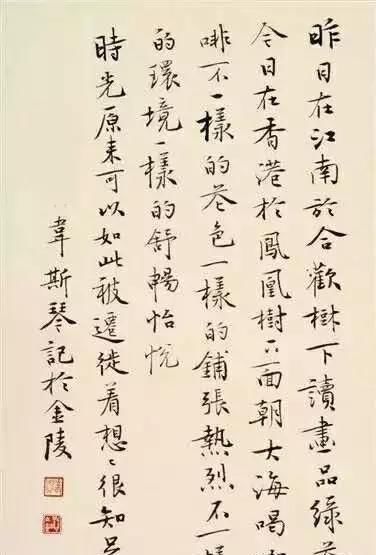 昨日在江南於合歡樹下讀畫品綠茶
今日在香港於鳳凰樹下面朝大海喝咖
啡不一樣的花色一樣的鋪張熱烈不一樣
的環境一樣的舒暢怡悅
時光原来可以如此被遷徙着想〻很知足
韋斯琴記於金陵